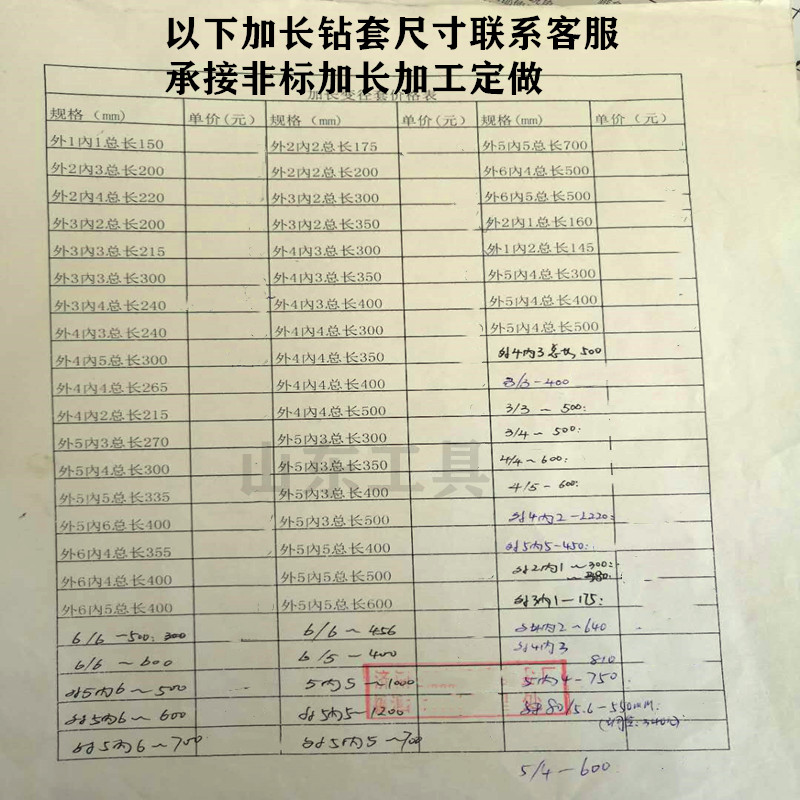 以下加长钻套尺寸联系客服
承接非标加长加工定做
加长变径套价格表
规格（mm） 单价(元） 规格（mm） 单价(元） 规格(mm) 单价（元）
外1内1总长150 外2内2总长175 外5内5总长700
外2内3总长200 外2内2总长200 外6内4总长500
外2内4总长220 外3内2总长300 外6内5总长500
外3内2总长200 外3内2总长350 外2内1总长160
外3内3总长215 外4内3总长300 外1内2总长145
外3内3总长300 外4内3总长350 外5内4总长300
外3内4总长240 外4内3总长400 外5内4总长400
外4内3总长240 外4内4总长300 外5内4总长500
外4内5总长300 外4内4总长350 外4内3总长500
外4内4总长265 外4内4总长400 3/3-400
外4内2总长215 外4内4总长500 3/3~500:
外5内3总长270 外5内3总长300 3/4~500:
外5内4总长300 外5内3总长350 4/4~600:
外5内5总长335 外5内3总长400 4/5-600:
外5内6总长400 外5内3总长500 外4内2-1220:
外6内4总长355 外5内5总长400 外5内5-450:
外6内4总长400 外5内5总长500 外2内1~300:
~380:
外6内5总长400 外5内5总长600 外3内1-175:
6/6~500: 300 6/6~456 外4内2~640
6/6~600 6/5-400 外4内3 810
外5内6~500 5内5~1000 5内4-750
外5内6~600 外5内5~1200 80/5.6-550MM.
外5内6~700 外5内5~700
5/4-600
山东工具